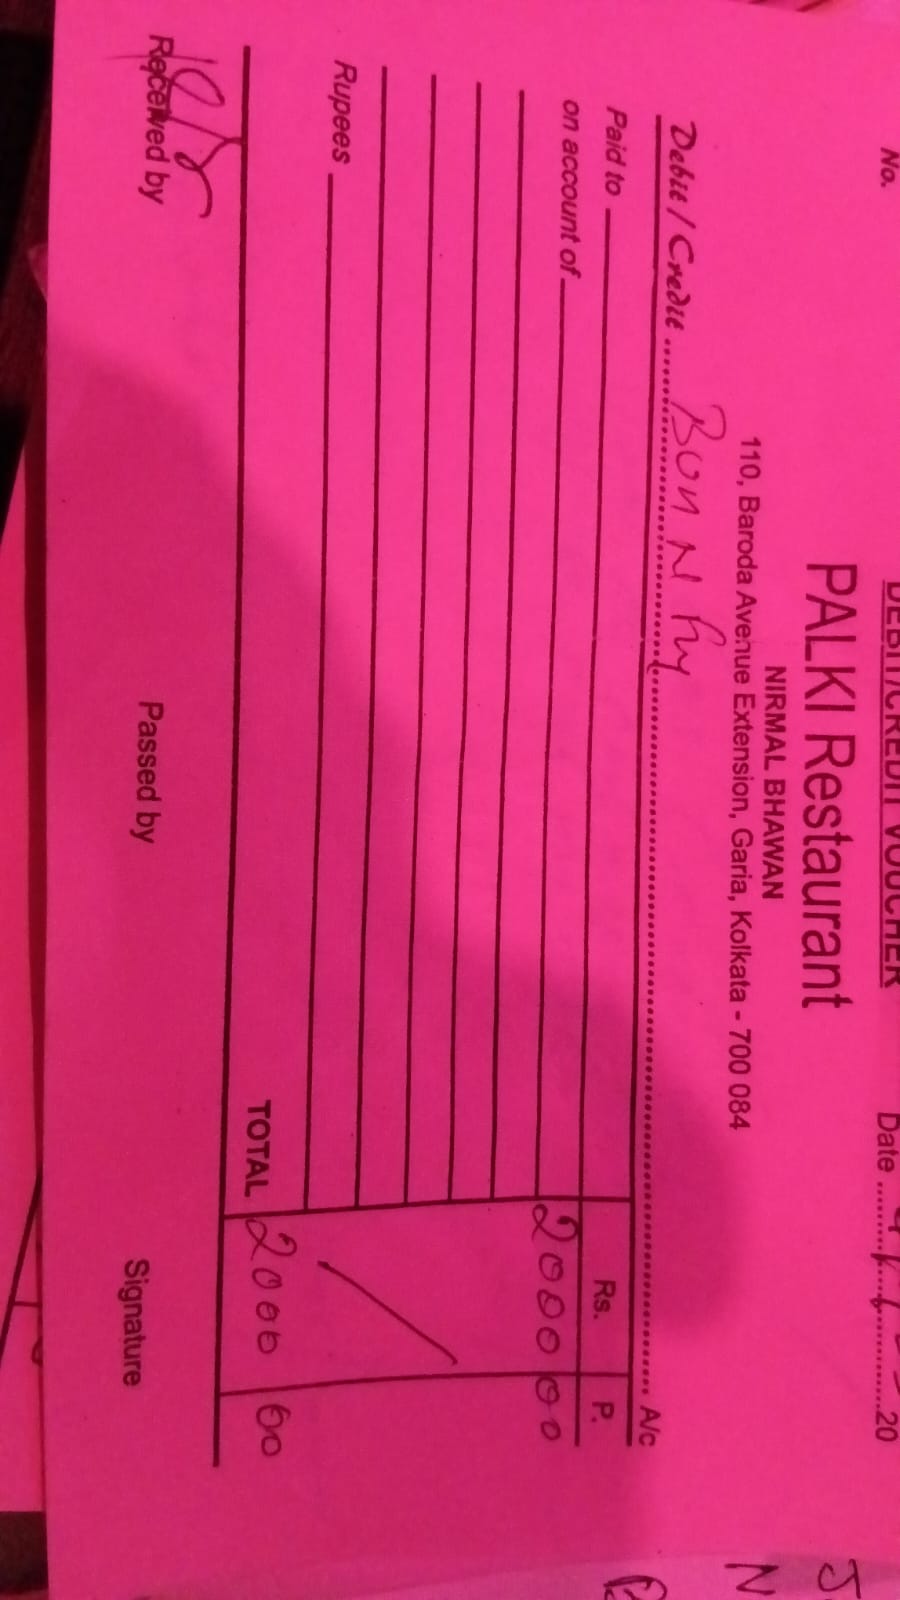 DEBIT/CREDIT VOUCHER
No.
Date ............20
PALKI Restaurant
NIRMAL BHAWAN
110, Baroda Avenue Extension, Garia, Kolkata - 700 084
Debit / Credit ........ Bun N Fry ........ A/c
Paid to Rs. P.
on account of 2000 00
Rupees
TOTAL 2000 00
Received by Passed by Signature